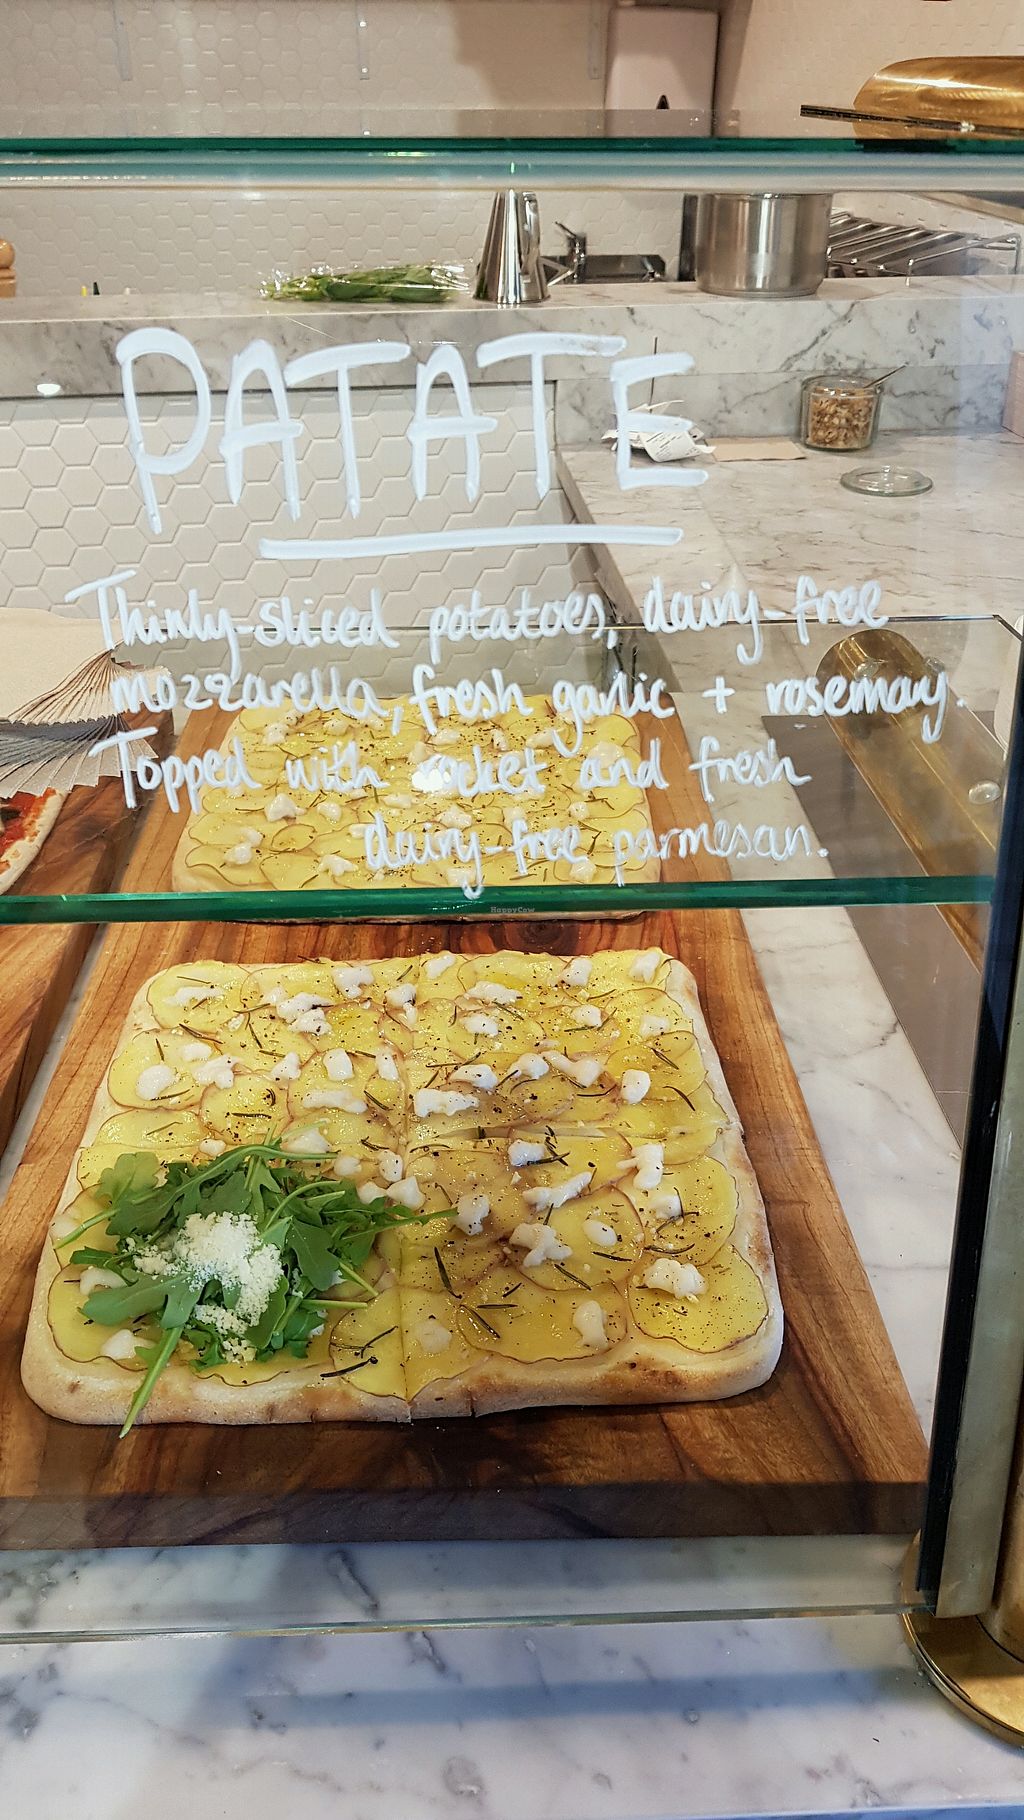 PATATE
Thinly-sliced potatoes, dairy-free
mozzarella, fresh garlic + rosemary.
Topped with rocket and fresh
dairy-free parmesan.
HappyCow